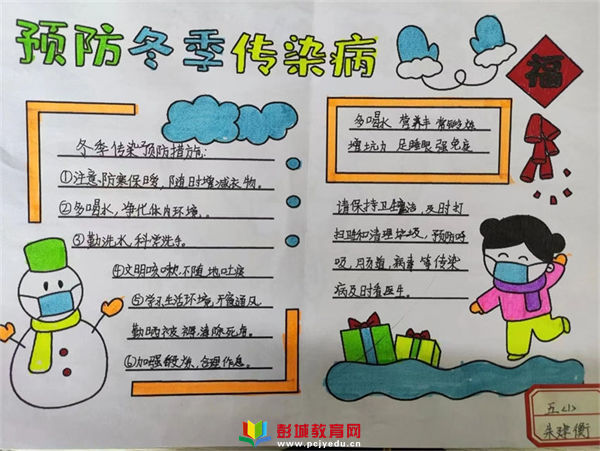 预防冬季传染病
福
冬季传染预防措施:
①注意防寒保暖,随时增减衣物。
②多喝水,净化体内环境。
③勤洗水,科学洗手。
④文明咳嗽,不随地吐痰
⑤学习生活环境,开窗通风
勤晒被褥,清除死角。
⑥加强锻炼,合理作息。
多喝水 营养丰 常锻炼
增抗力 足睡眠 强免疫
请保持卫生清洁,及时打
扫和清理垃圾,预防呼
吸,肠道,病毒等传染
病及时看医生。
五(1)
朱建衡
彭城教育网
www.pcjyedu.cn